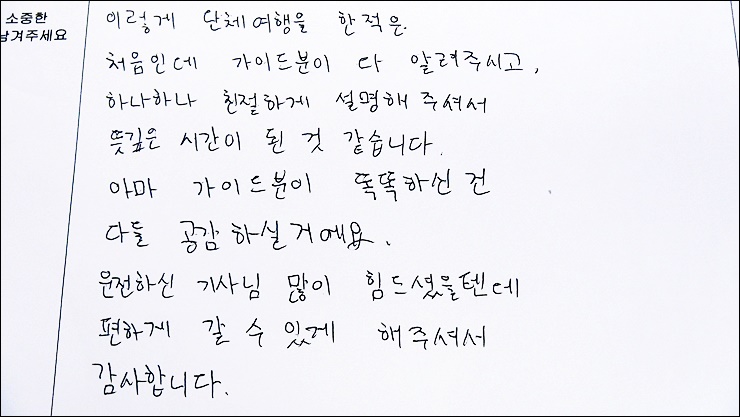 소중한
남겨주세요
이렇게 단체여행을 한 적은
처음인데 가이드분이 다 알려주시고,
하나하나 친절하게 설명해 주셔서
뜻깊은 시간이 된 것 같습니다.
아마 가이드분이 똑똑하신 건
다들 공감하실거예요.
운전하신 기사님 많이 힘드셨을텐데
편하게 갈 수 있게 해주셔서
감사합니다.